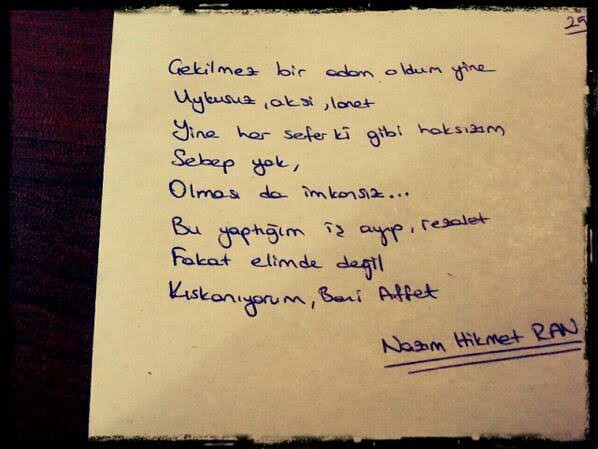 29
Çekilmez bir adam oldum yine
Uykusuz, aksi, lanet
Yine her seferki gibi haksızım
Sebep yok,
Olması da imkansız...
Bu yaptığım iş ayıp, rezalet
Fakat elimde değil
Kıskanıyorum, Beni Affet
Nazım Hikmet RAN